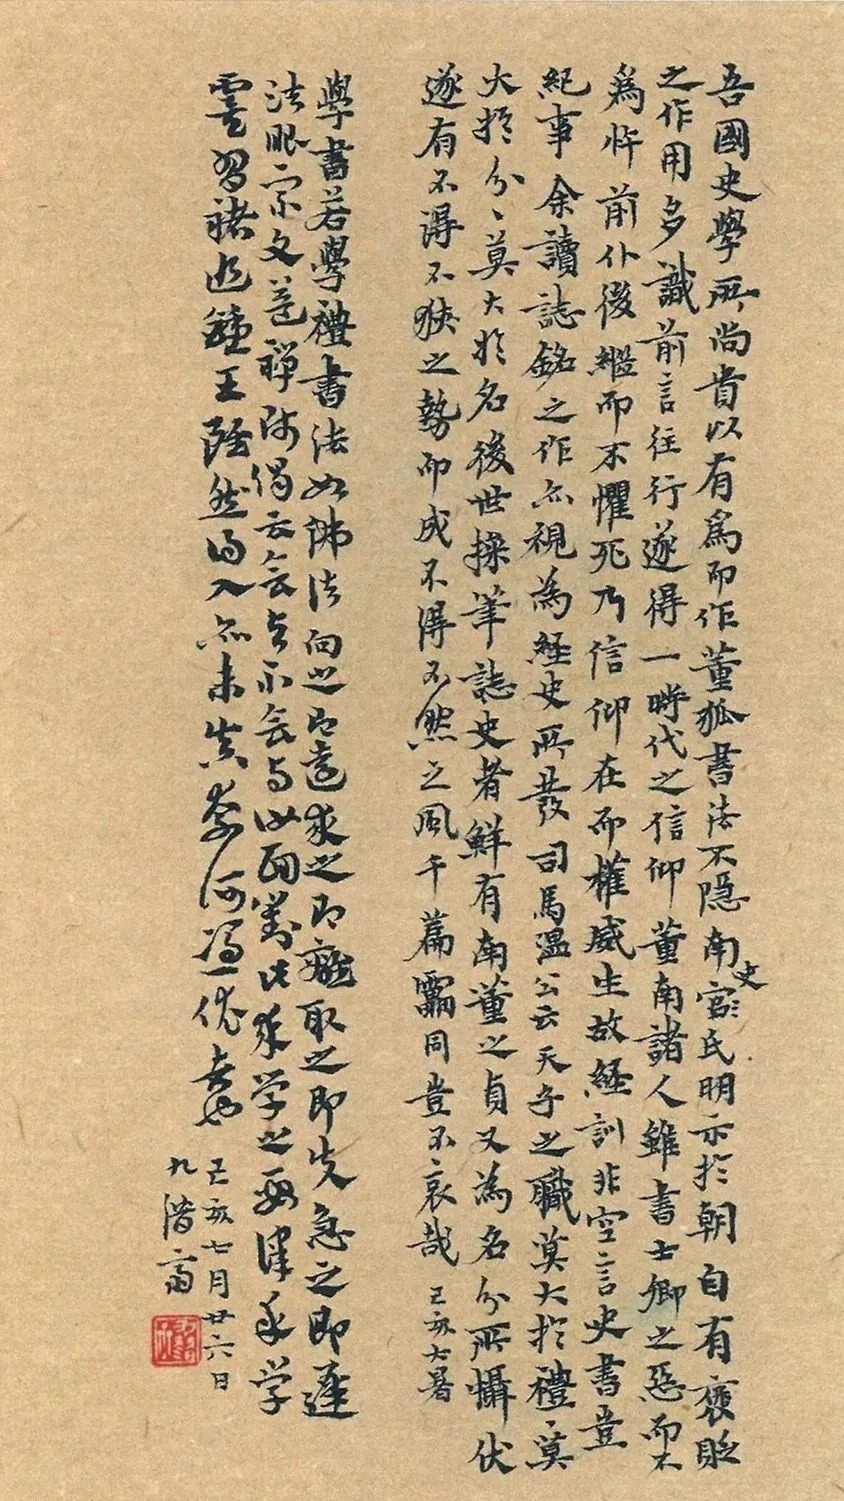 吾國史學所尚貴以有為而作董狐書法不隱南史宮氏明示於朝自有褒貶
之作用多識前言往行遂得一時代之信仰董南諸人雖書士卿之惡而不
為忤前仆後繼而不懼死乃信仰在而權威生故經訓非空言史書豈
紀事余讀誌銘之作亦視為經史所發司馬溫公云天子之職莫大於禮禮莫
大於分分莫大於名後世操筆誌史者鮮有南董之貞又為名分所懾伏
遂有不得不狹之勢而成不得不然之風千篇雷同豈不哀哉 己亥大暑
學書若學禮書法如佛法向之即遠求之即離取之即失急之即遲
法眼宗文益禪師偈云會與不會與汝面對此來學之要津永學
雲習褚追鍾王雖然得入亦未真奈何馮一優去也
己亥七月廿六日
九潛齋